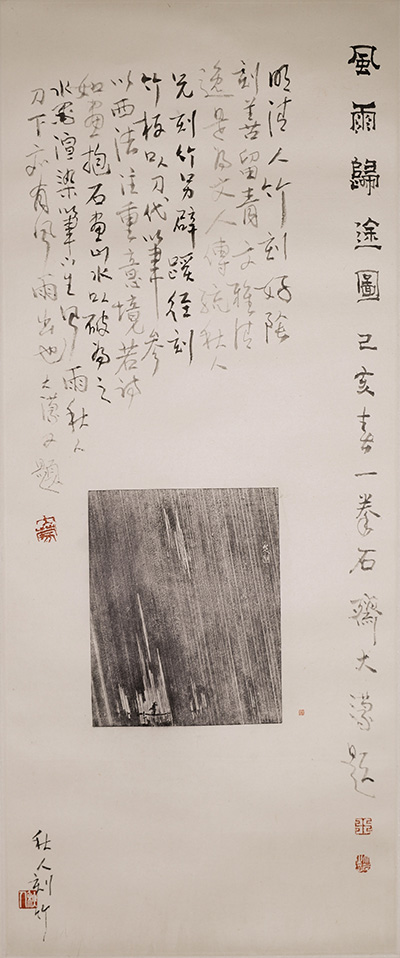 風雨歸途圖 己亥春一拳石齋大濛題
明清人竹刻好陰
刻善留青文雅清
逸是為文人傳統秋人
兄刻竹另辟蹊徑刻
竹板以刀代筆參
以西法注重意境若詩
如畫抱石畫山水以破為之
水墨渲染筆下生風雨秋人
刀下亦有風雨出也大濛又題
秋人刻竹